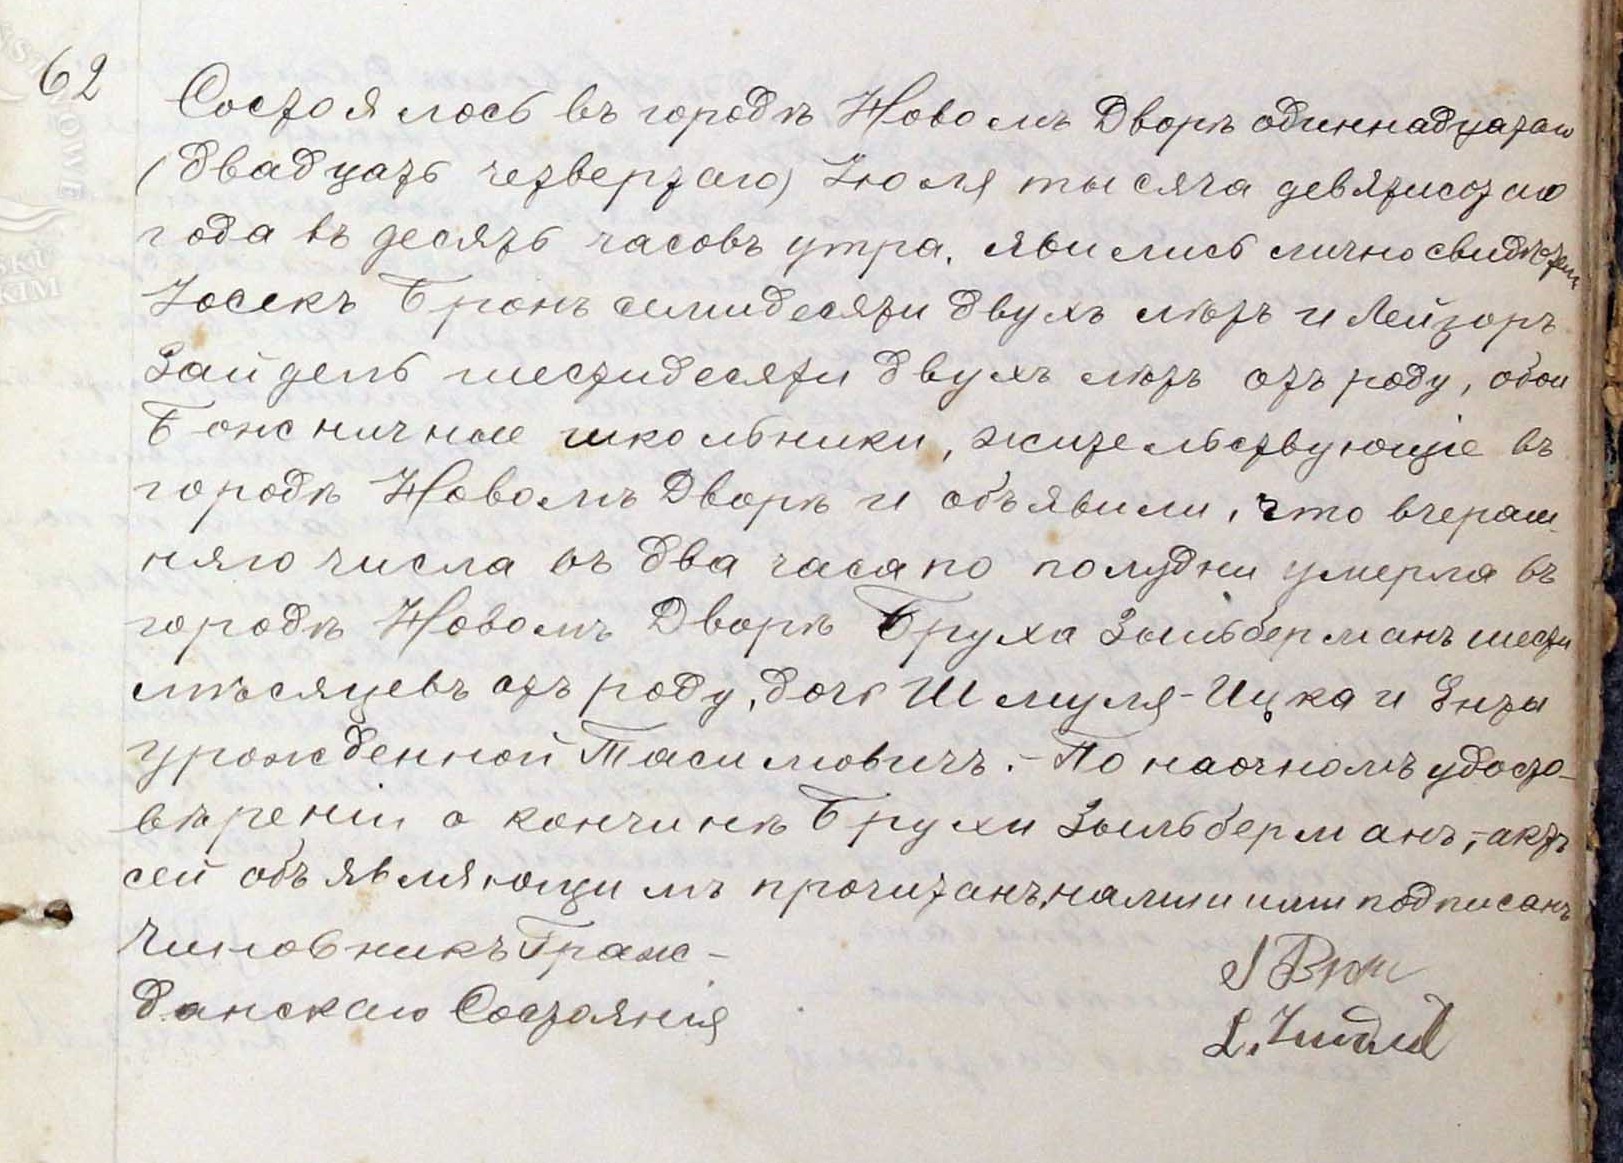 62
Состоялось въ городѣ Новомъ Дворѣ одиннадцатаго
(двадцать четвертаго) Іюля тысяча девятисотаго
года въ десять часовъ утра, явились лично свидѣтели
Іосекъ Бронъ семидесяти двухъ лѣтъ и Лейзоръ
Зайдель шестидесяти двухъ лѣтъ отъ роду, обои
Божничные школьники, жительствующіе въ
городѣ Новомъ Дворѣ и объявили, что вчераш-
няго числа въ два часа по полудни умерла въ
городѣ Новомъ Дворѣ Бруха Зыльберманъ шести
мѣсяцевъ отъ роду, дочь Шмуля-Ицка и Энты
урожденной Тасимовичъ.- По наочномъ удосто-
вѣреніи о кончинѣ Брухи Зыльберманъ,- актъ
сей объявляющимъ прочитанъ, нами и ими подписанъ
Чиновникъ Граж-
данскаго Состоянія